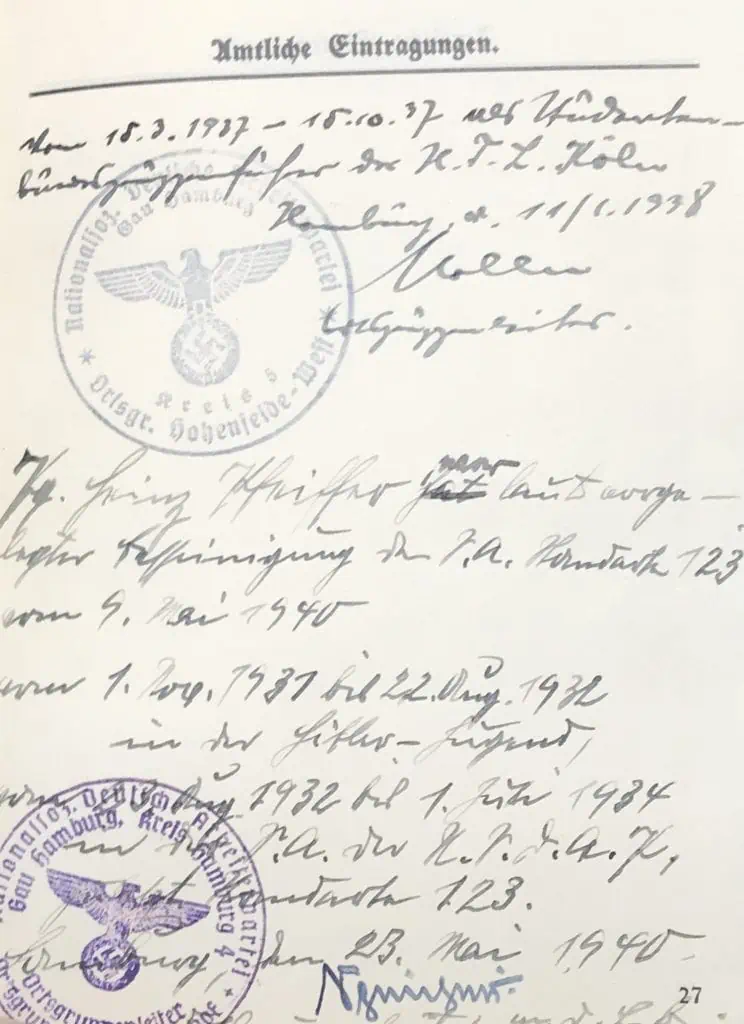 Amtliche Eintragungen.
Vom 18.3.1937 – 15.10.37 als Studenten-
bundsgruppenführer der H.T.L. Köln
Hamburg, d. 11/1.1938
Ortsgruppenleiter.
Nationalsoz. Deutsche Arbeiterpartei
Gau Hamburg
Kreis 5
Ortsgr. Hohenfelde-West
Pg. Heinz Pfeiffer hat war laut vorge-
legter Bescheinigung der S.A. Standarte 123
vom 9. Mai 1940
vom 1. Nov. 1931 bis 22. Aug. 1932
in der Hitler-Jugend,
vom Aug. 1932 bis 1. Juli 1934
in der S.A. der N.S.D.A.P.,
Standarte 123.
Hamburg, den 23. Mai 1940.
Nationalsoz. Deutsche Arbeiterpartei
Gau Hamburg, Kreis Hamburg 4
Ortsgruppenleiter
27